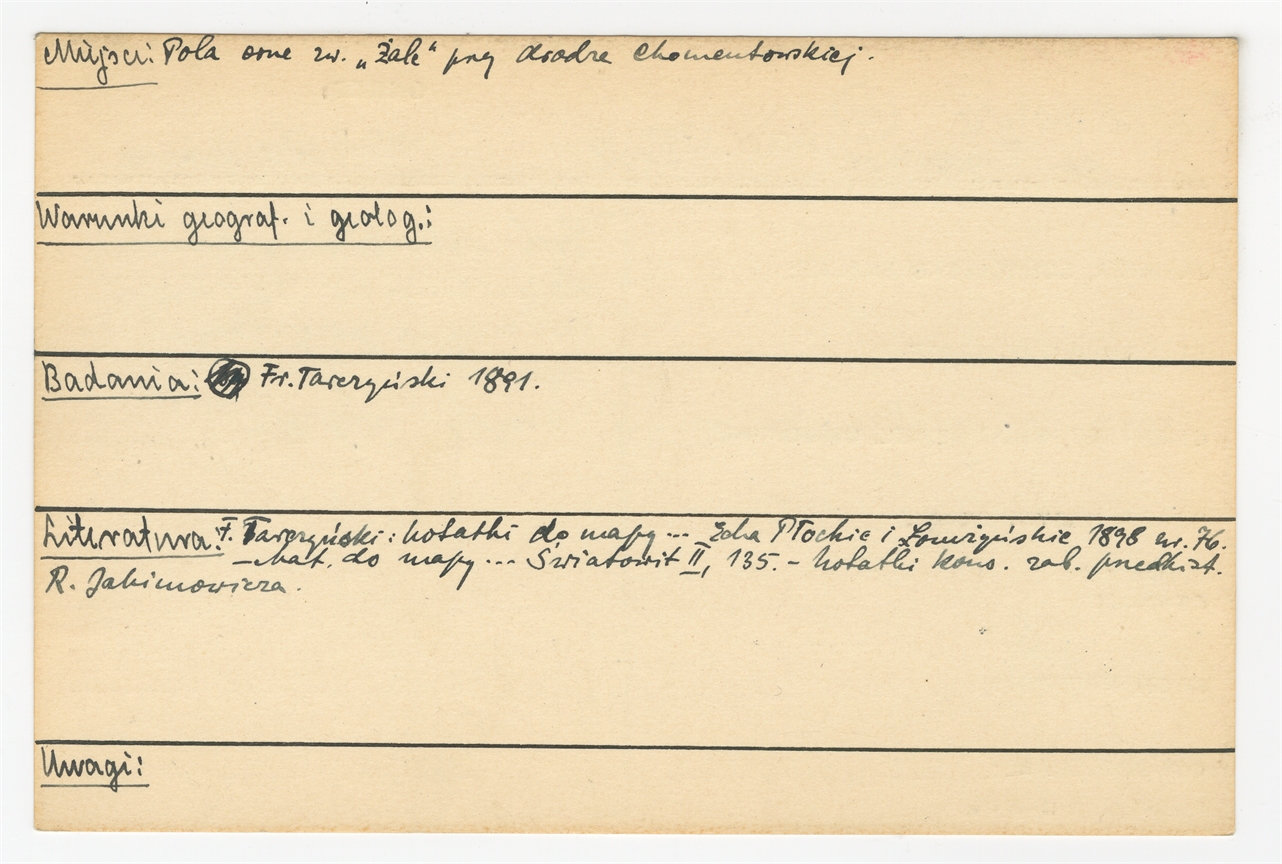 Miejsce: Pola orne zw. „Żale" przy drodze Chomentowskiej.
Warunki geograf. i geolog.:
Badania: Fr. Tarczyński 1891.
Literatura: F. Tarczyński: Notatki do mapy... Echa Płockie i Łomżyńskie 1898 nr. 76.
– Mat. do mapy... Światowit II, 135. – Notatki kons. zab. przedhist.
R. Jakimowicza.
Uwagi: